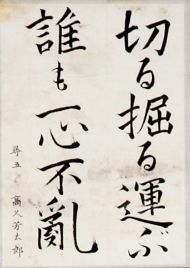 切る掘る運ぶ
誰も一心不亂
尋五 高久芳太郎